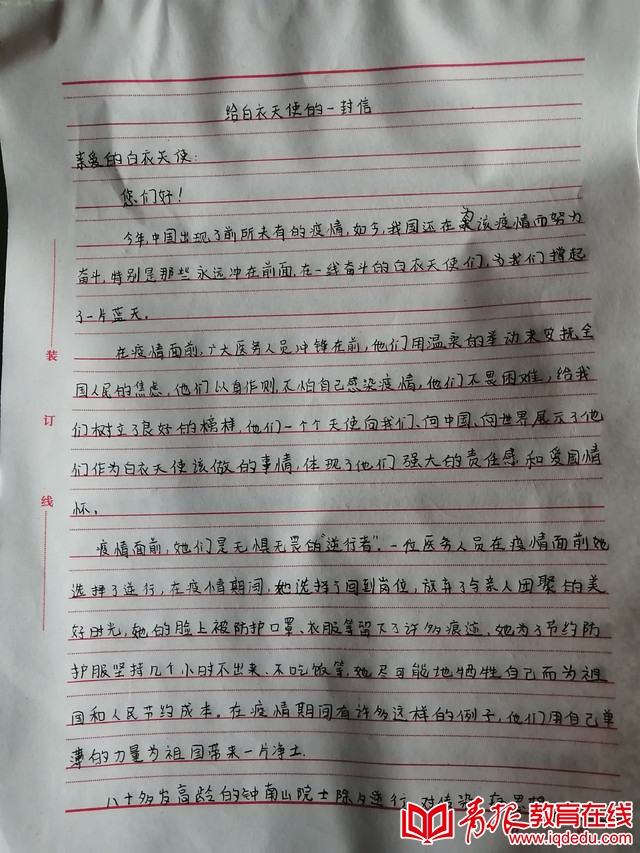 给白衣天使的一封信
亲爱的白衣天使:
您们好!
今年,中国出现了前所未有的疫情,如今,我国还在为该疫情而努力
奋斗,特别是那些永远冲在前面,在一线奋斗的白衣天使们,为我们撑起
了一片蓝天。
在疫情面前,广大医务人员冲锋在前,他们用温柔的举动来安抚全
国人民的焦虑,他们以自作则,不怕自己感染疫情,他们不畏困难,给我
们树立了良好的榜样,他们一个个天使向我们、向中国、向世界展示了他
们作为白衣天使该做的事情,体现了他们强大的责任感和爱国情
怀。
疫情面前,她们是无惧无畏的“逆行者”。一位医务人员在疫情面前她
选择了逆行,在疫情期间,她选择了回到岗位,放弃了与亲人团聚的美
好时光,她的脸上被防护口罩、衣服等留下了许多痕迹,她为了节约防
护服坚持几个小时不出来、不吃饭等,她尽可能地牺牲自己而为祖
国和人民节约成本。在疫情期间有许多这样的例子,他们用自己单
薄的力量为祖国带来一片净土.
八十多岁高龄的钟南山院士除夕逆行,对传染
装
订
线
青报教育在线
www.iqdedu.com